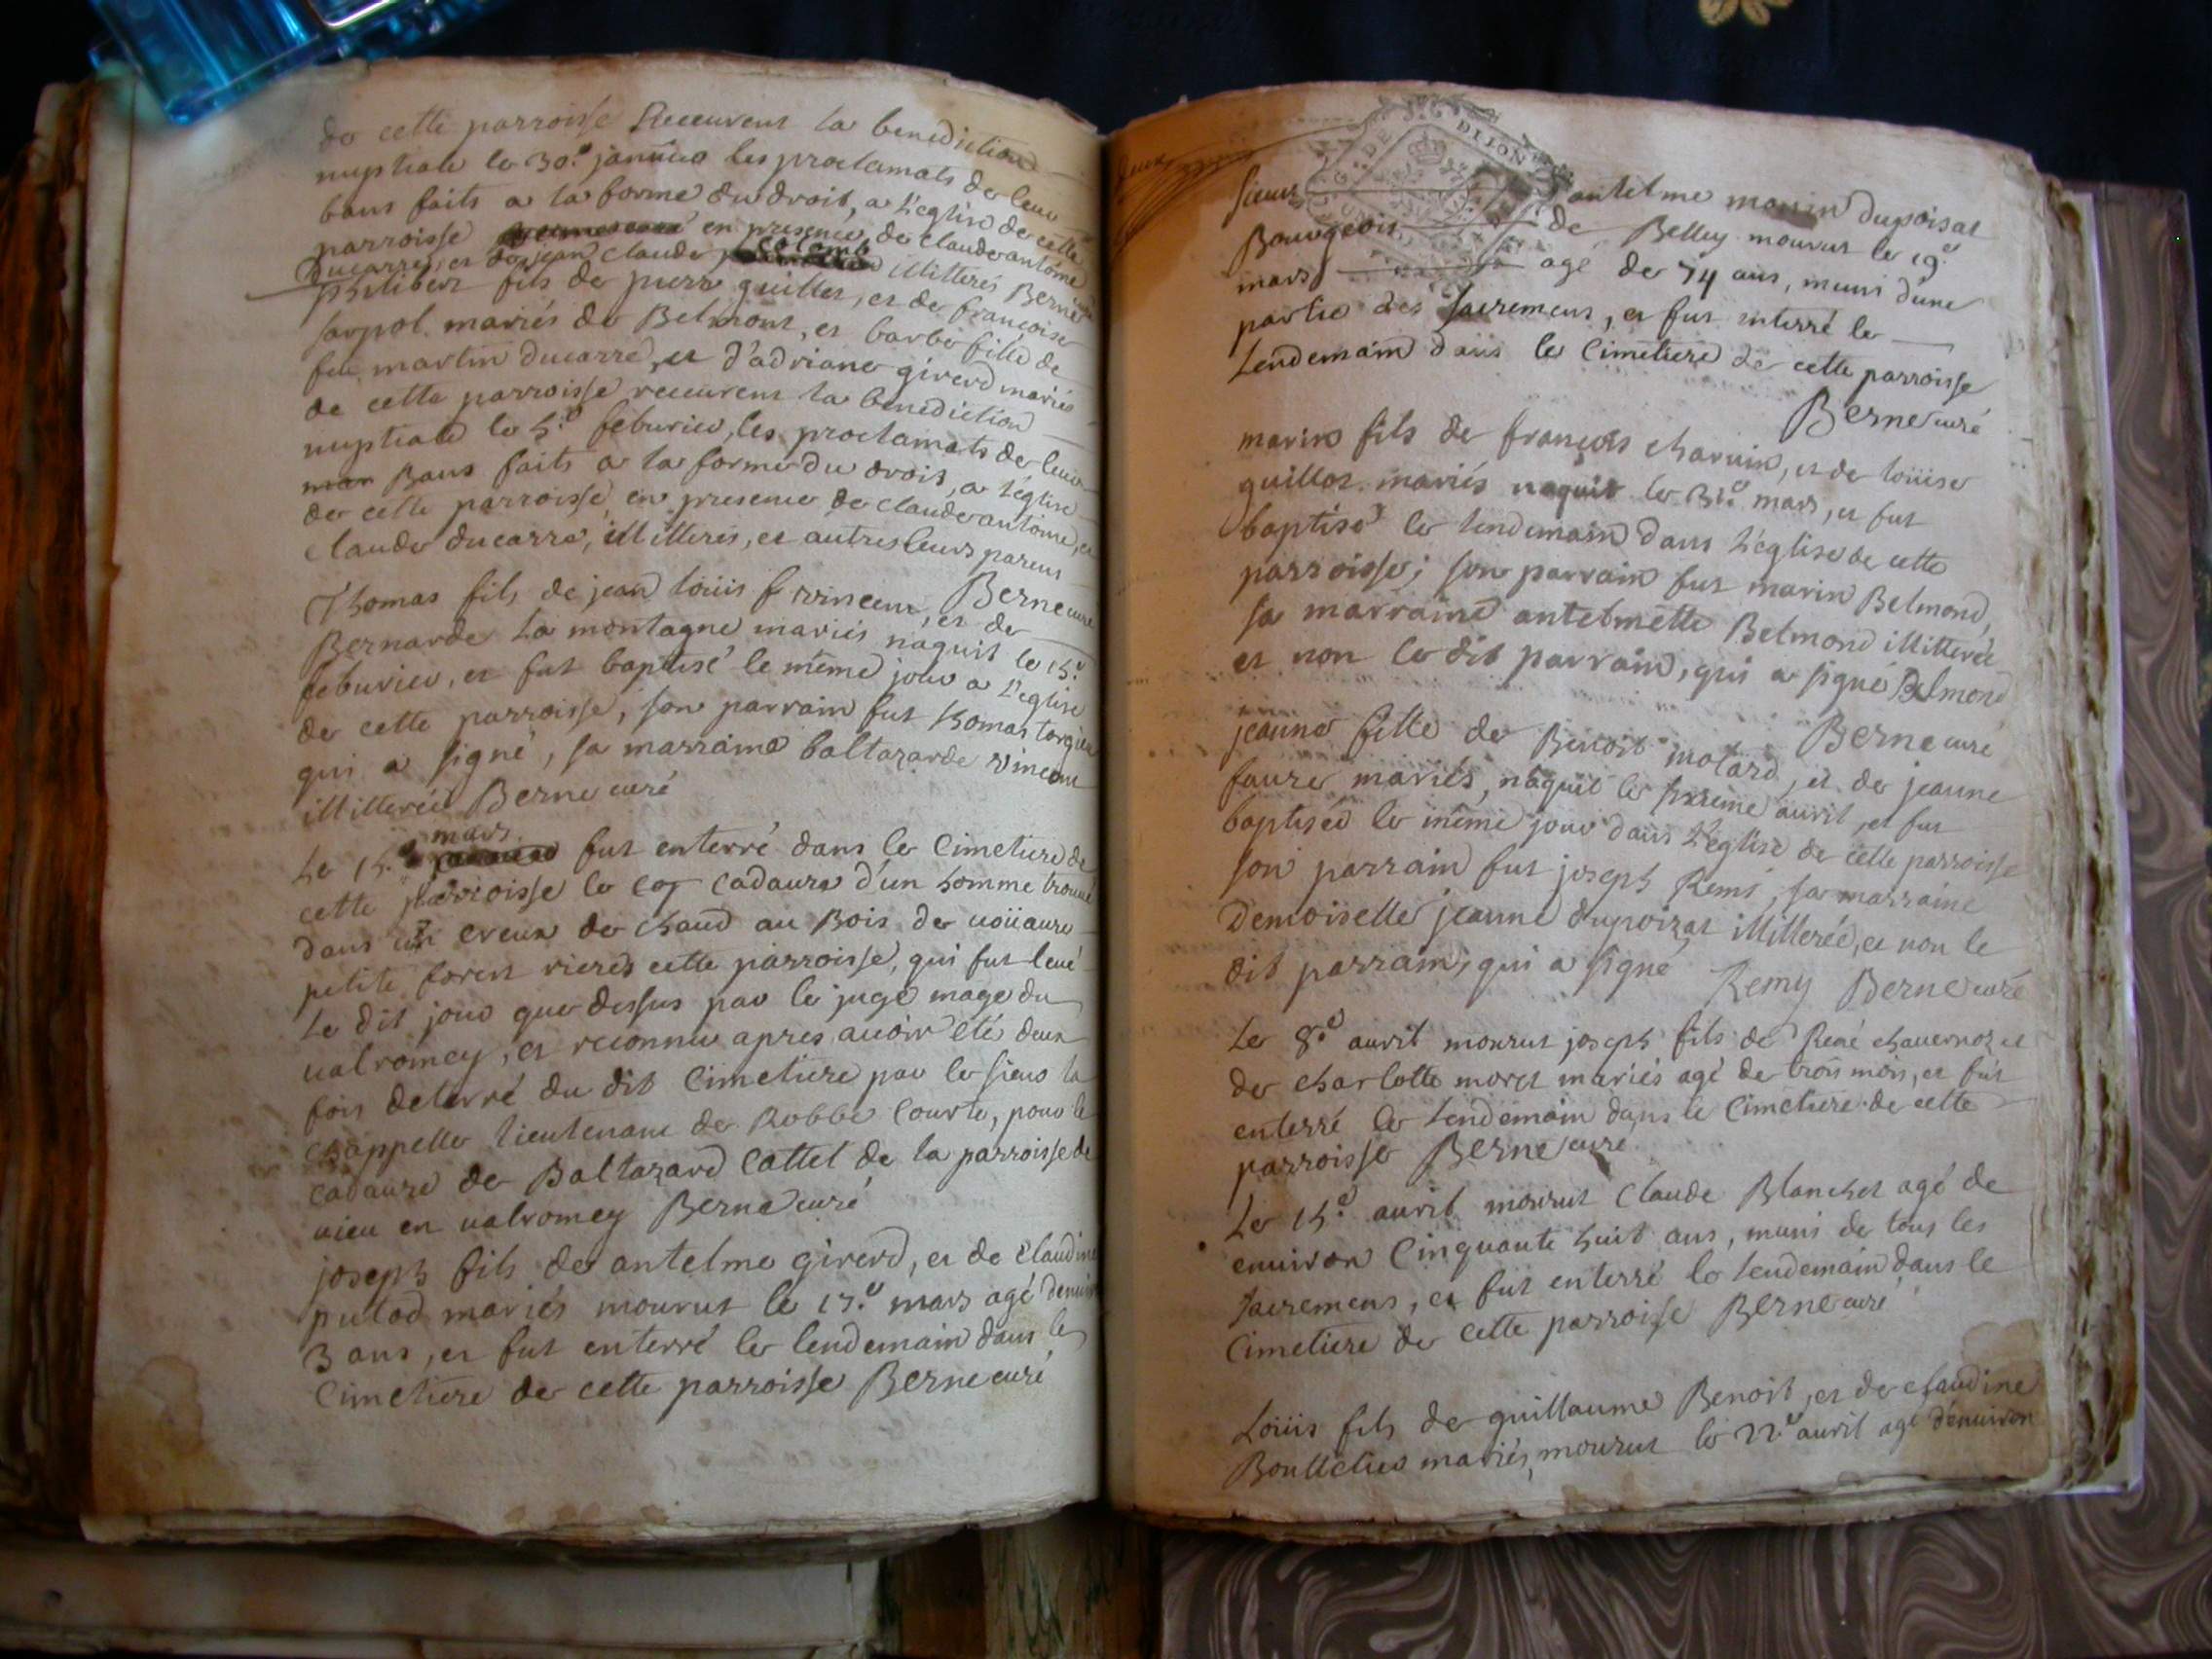 de cette parroisse Receurent la benediction
nuptiale le 30.e januier les proclamats de leur
bans faits a la forme du droit, a l'eglise de cette
parroisse en presence de claude antoine
Ducarre, et de jean claude colomb illitterés Berne
philibert fils de pierre guillot, et de françoise
sarpol mariés de Belmont, et barbe fille de
feu martin ducarre, et d'adriane girerd mariés
de cette parroisse receurent la benediction
nuptiale le 5.e feburier, les proclamats de leur
Bans faits a la forme du droit, a l'eglise
de cette parroisse, en presence de claude antoine, et
claude ducarre, illitterés, et autres leurs parens
Berne curé
Thomas fils de jean loüis vincent, et de
Bernarde La montagne mariés naquit le 15.e
feburier, et fut baptisé le même jour a l'eglise
de cette parroisse, son parrain fut thomas
qui a signé, sa marraine baltazarde vincent
illitterée Berne curé
mars
Le 15.e fut enterré dans le Cimetiere de
cette parroisse le cadaure d'un homme trouué
dans un creux de chaud au Bois de
petite forest riere cette parroisse, qui fut leué
Le dit jour que dessus par le juge mage du
ualromey, et reconnu apres auoir eté deux
fois deterré du dit Cimetiere par le sieur la
chappelle lieutenant de Robbe Courte, pour le
cadaure de Baltazard Cattel de la parroisse de
uieu en ualromey Berne curé
joseph fils de antelme girerd, et de claudine
putod mariés mourut le 17.e mars agé denuiron
3 ans, et fut enterré le lendemain dans le
Cimetiere de cette parroisse Berne curé
deux
DE DIJON
sieur antelme monin dupoisat
Bourgeois de Belley mourut le 19.e
mars agé de 74 ans, muni d'une
partie des sacremens, et fut enterré le
Lendemain dans le Cimetiere de cette parroisse
Berne curé
marin fils de françois charuin, et de loüise
guillot mariés naquit le 31.e mars, et fut
baptisé le lendemain dans l'eglise de cette
parroisse; son parrain fut marin Belmond,
sa marraine antelmette Belmond illitterée
et non le dit parrain, qui a signé Belmond
Berne curé
jeanne fille de Benoit motard, et de jeanne
faure mariés, naquit le sixieme auril, et fut
baptisée le même jour dans l'eglise de cette parroisse
son parrain fut joseph Remi, sa marraine
Demoiselle jeanne dupoizat illitterée, et non le
dit parrain, qui a signé Remy Berne curé
Le 8.e auril mourut joseph fils de René chauernoz et
de charlotte moret mariés agé de trois mois, et fut
enterré le Lendemain dans le Cimetiere de cette
parroisse Berne curé
Le 15.e auril mourut Claude Blanchet agé de
enuiron Cinquante huit ans, muni de tous les
sacremens, et fut enterré le lendemain dans le
Cimetiere de cette parroisse Berne curé
Loüis fils de guillaume Benoit, et de claudine
mariés, mourut le 22.e auril agé d'enuiron